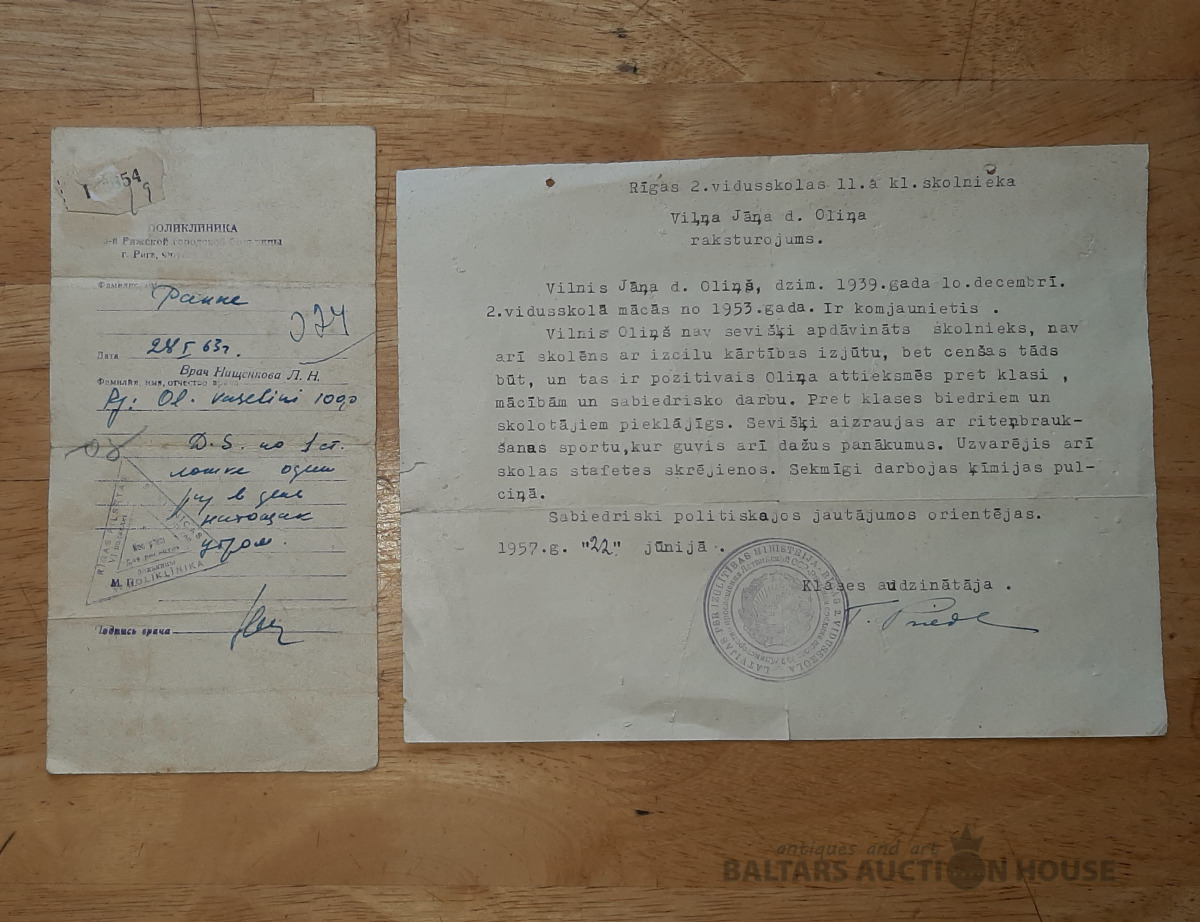 54
9
ПОЛИКЛИНИКА
Рижской городской больницы
г. Рига,
Фамилия,
Ранке
374
Дата 28 I 63г.
Врач Нищенкова Л. Н.
Фамилия, имя, отчество врача
Rp: Ol. vaselini 100,0
D.S. по 1 ст.
ложке один
раз в день
натощак
утром.
RĪGAS PILSĒTAS
POLIKLĪNIKA
М. П.
Подпись врача
Rīgas 2.vidusskolas 11.a kl.skolnieka
Viļņa Jāņa d. Oliņa
raksturojums.
Vilnis Jāņa d. Oliņš, dzim. 1939.gada 10.decembrī.
2.vidusskolā mācās no 1953.gada. Ir komjaunietis .
Vilnis Oliņš nav sevišķi apdāvināts skolnieks, nav
arī skolēns ar izcilu kārtības izjūtu, bet cenšas tāds
būt, un tas ir pozitivais Oliņa attieksmēs pret klasi ,
mācībām un sabiedrisko darbu. Pret klases biedriem un
skolotājiem pieklājīgs. Sevišķi aizraujas ar riteņbrauk-
šanas sportu,kur guvis arī dažus panākumus. Uzvarējis arī
skolas stafetes skrējienos. Sekmīgi darbojas ķīmijas pul-
ciņā.
Sabiedriski politiskajos jautājumos orientējas.
1957.g. "22" jūnijā .
Klases audzinātāja .
T. Priede
LATVIJAS PSR IZGLĪTĪBAS MINISTRIJA · RĪGAS 2. VIDUSSKOLA
antiques and art
BALTARS AUCTION HOUSE